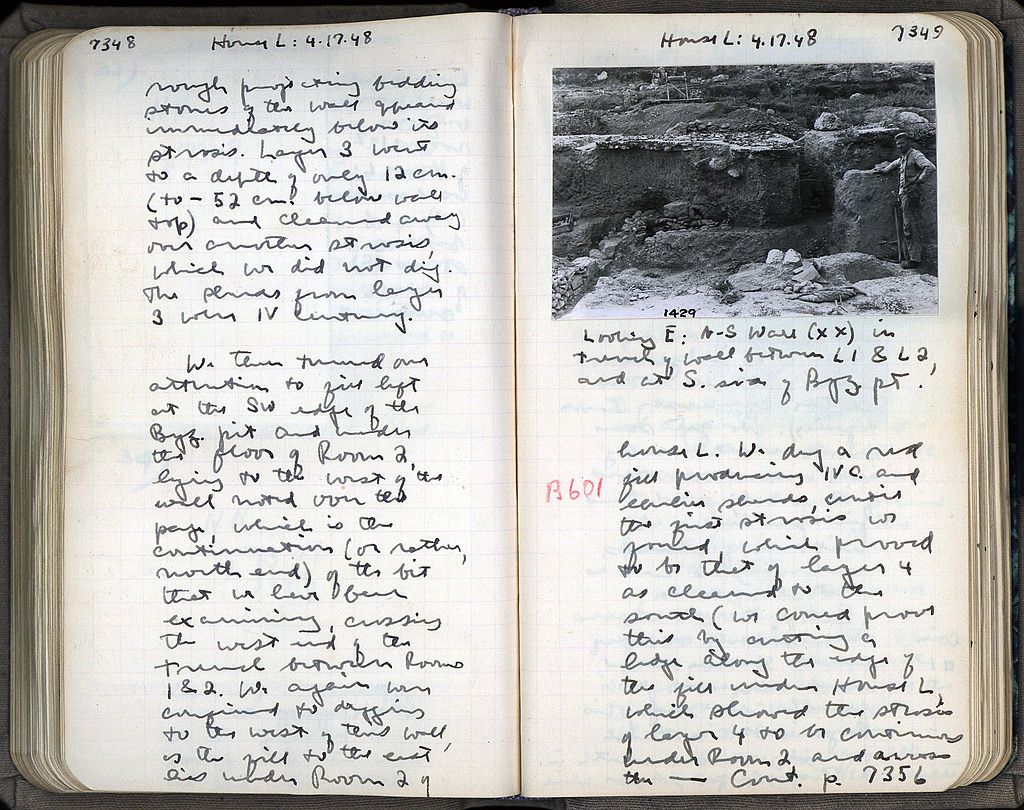 7348
House L: 4.17.48
rough projecting bedding
stones of the wall appeared
immediately below its
strosis. Layer 3 went
to a depth of only 12 cm.
(to - 52 cm. below wall
top) and cleaned away
over another strosis,
which we did not dig.
The sherds from layer
3 were IV century.
We then turned our
attention to fill left
at the SW edge of the
Byz. pit and under
the floor of Room 2,
lying to the west of the
wall noted over the
page, which is the
continuation (or rather,
north end) of the bit
that we have been
examining, crossing
the west end of the
trench between Rooms
1 & 2. We again were
confined to digging
to the west of this wall,
as the fill to the east
lies under Room 2 of
House L: 4.17.48
7349
1429
Looking E: N-S Wall (xx) in
trench of wall between L1 & L2,
and at S. side of Byz pt.
house L. We dug a red
fill producing IV C. and
B601
earlier sherds, until
the first strosis we
found, which proved
to be that of layer 4
as cleaned to the
south (we could prove
this by cutting a
ledge along the edge of
the fill under House L,
which showed the strosis
of layer 4 to be continuous
under Room 2 and across
the — Cont. p. 7356